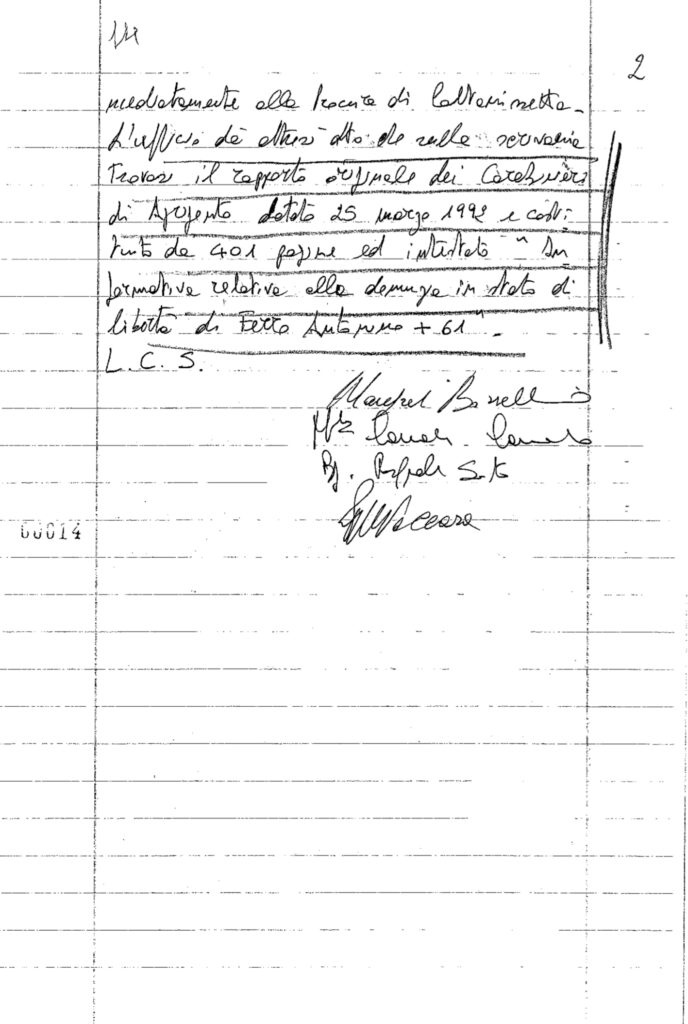 2
mediatamente alla Procura di Caltanissetta -
L'ufficio dà altresì atto che sulla scrivania
trovasi il rapporto originale dei Carabinieri
di Agrigento datato 25 marzo 1992 e costi
tuito da 401 pagine ed intestato " In
formativa relativa alla denunzia in stato di
libertà di Ferro Antonino + 61" -
L. C. S.
00014